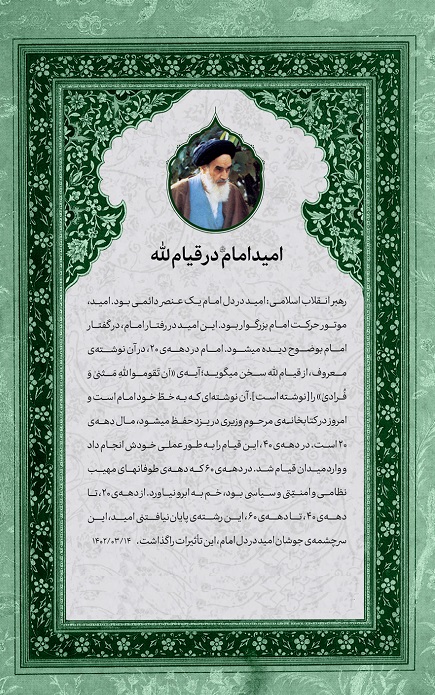 امید امام در قیام لله
رهبر انقلاب اسلامی: امید در دل امام یک عنصر دائمی بود. امید،
موتور حرکت امام بزرگوار بود. این امید در رفتار امام، در گفتار
امام بوضوح دیده میشود. امام در دهه‌ی ۲۰، در آن نوشته‌ی
معروف، از قیام لله سخن میگوید؛ آیه‌ی «اَن تَقوموا لِلّٰهِ مَثنیٰ وَ
فُرادیٰ» را [نوشته است]. آن نوشته‌ای که به خطّ خود امام است و
امروز در کتابخانه‌ی مرحوم وزیری در یزد حفظ میشود، مال دهه‌ی
۲۰ است. در دهه‌ی ۴۰، این قیام را به طور عملی خودش انجام داد
و وارد میدان قیام شد. در دهه‌ی ۶۰ که دهه‌ی طوفانهای مهیب
نظامی و امنیّتی و سیاسی بود، خم به ابرو نیاورد. از دهه‌ی ۲۰، تا
دهه‌ی ۴۰، تا دهه‌ی ۶۰، این رشته‌ی پایان نیافتنی امید، این
سرچشمه‌ی جوشان امید در دل امام، این تأثیرات را گذاشت. ۱۴۰۲/۰۳/۱۴